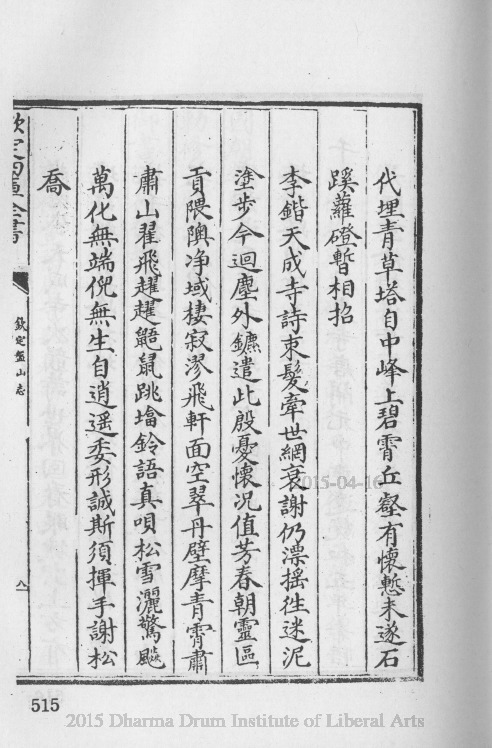 代埋青草塔自中峰上碧霄丘壑有懷慙未遂石
蹊蘿磴暫相招
李鍇天成寺詩束髮牽世網衰謝仍漂揺徃迷泥
塗步今迴塵外鑣遣此殷憂懷况值芳春朝靈區
貢隈隩净域棲寂漻飛軒面空翠丹壁摩青霄肅
肅山翟飛趯趯鼯鼠跳墖鈴語真唄松雪灑驚飇
萬化無端倪無生自逍遥委形誠斯須揮手謝松
喬
欽定四庫全書
欽定盤山志
八
515
2015-04-16
2015 Dharma Drum Institute of Liberal Arts